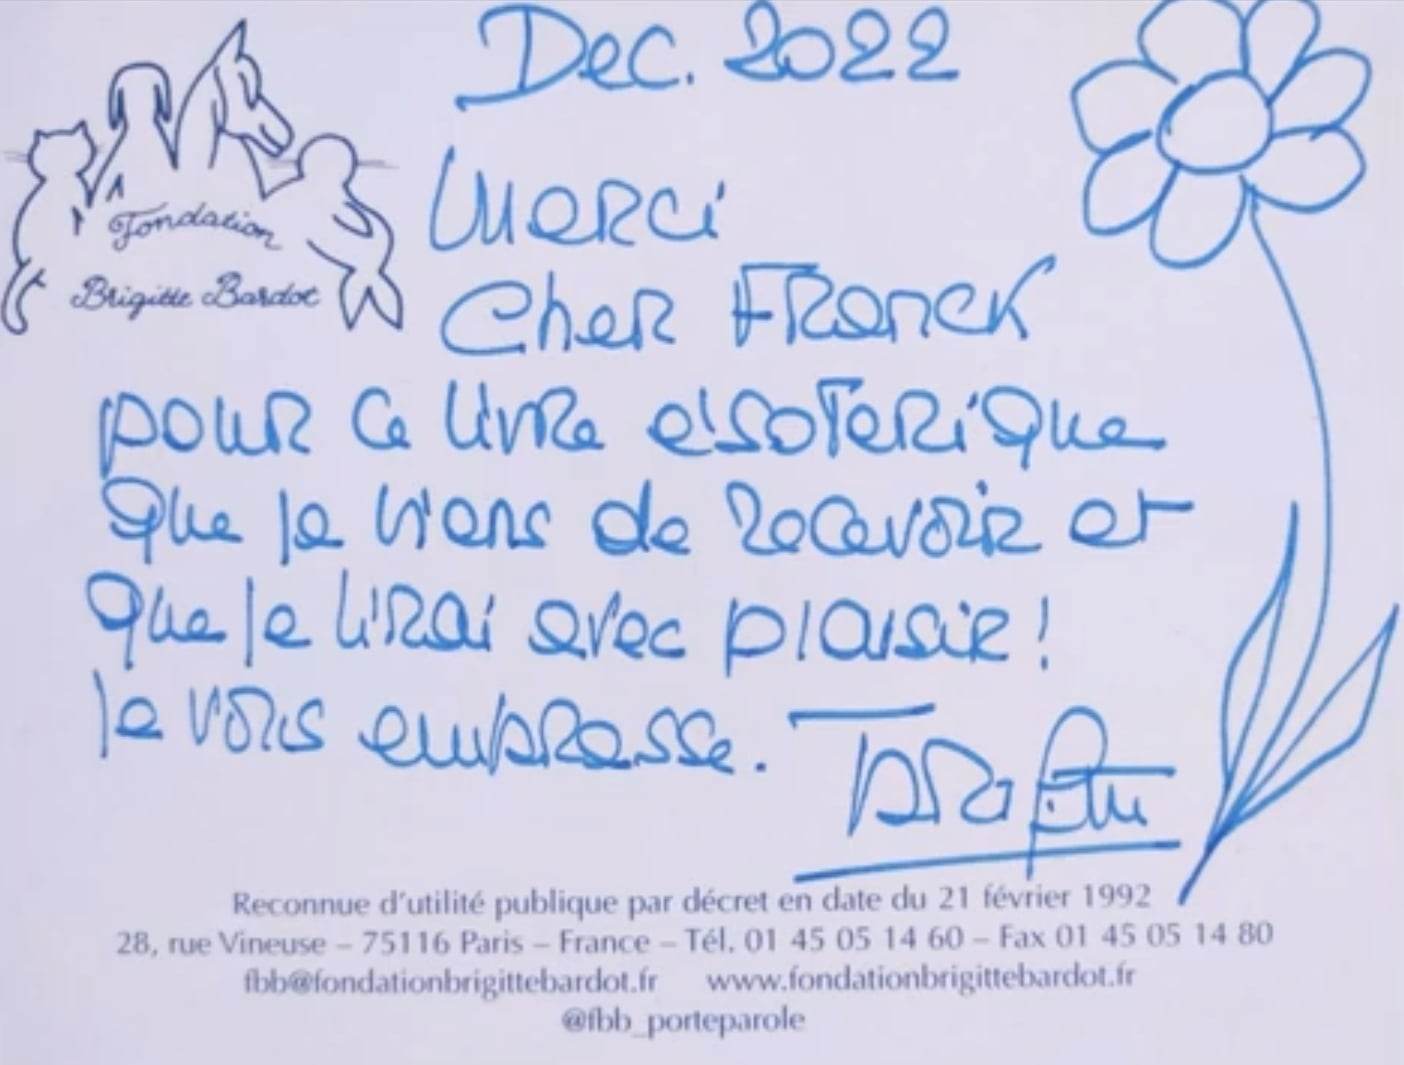 Dec. 2022
Fondation
Brigitte Bardot
Merci
Cher Franck
pour ce livre esoterique
que je viens de recevoir et
que je lirai avec plaisir !
je vous embrasse.
Reconnue d'utilité publique par décret en date du 21 février 1992
28, rue Vineuse – 75116 Paris – France – Tél. 01 45 05 14 60 – Fax 01 45 05 14 80
fbb@fondationbrigittebardot.fr www.fondationbrigittebardot.fr
@fbb_porteparole